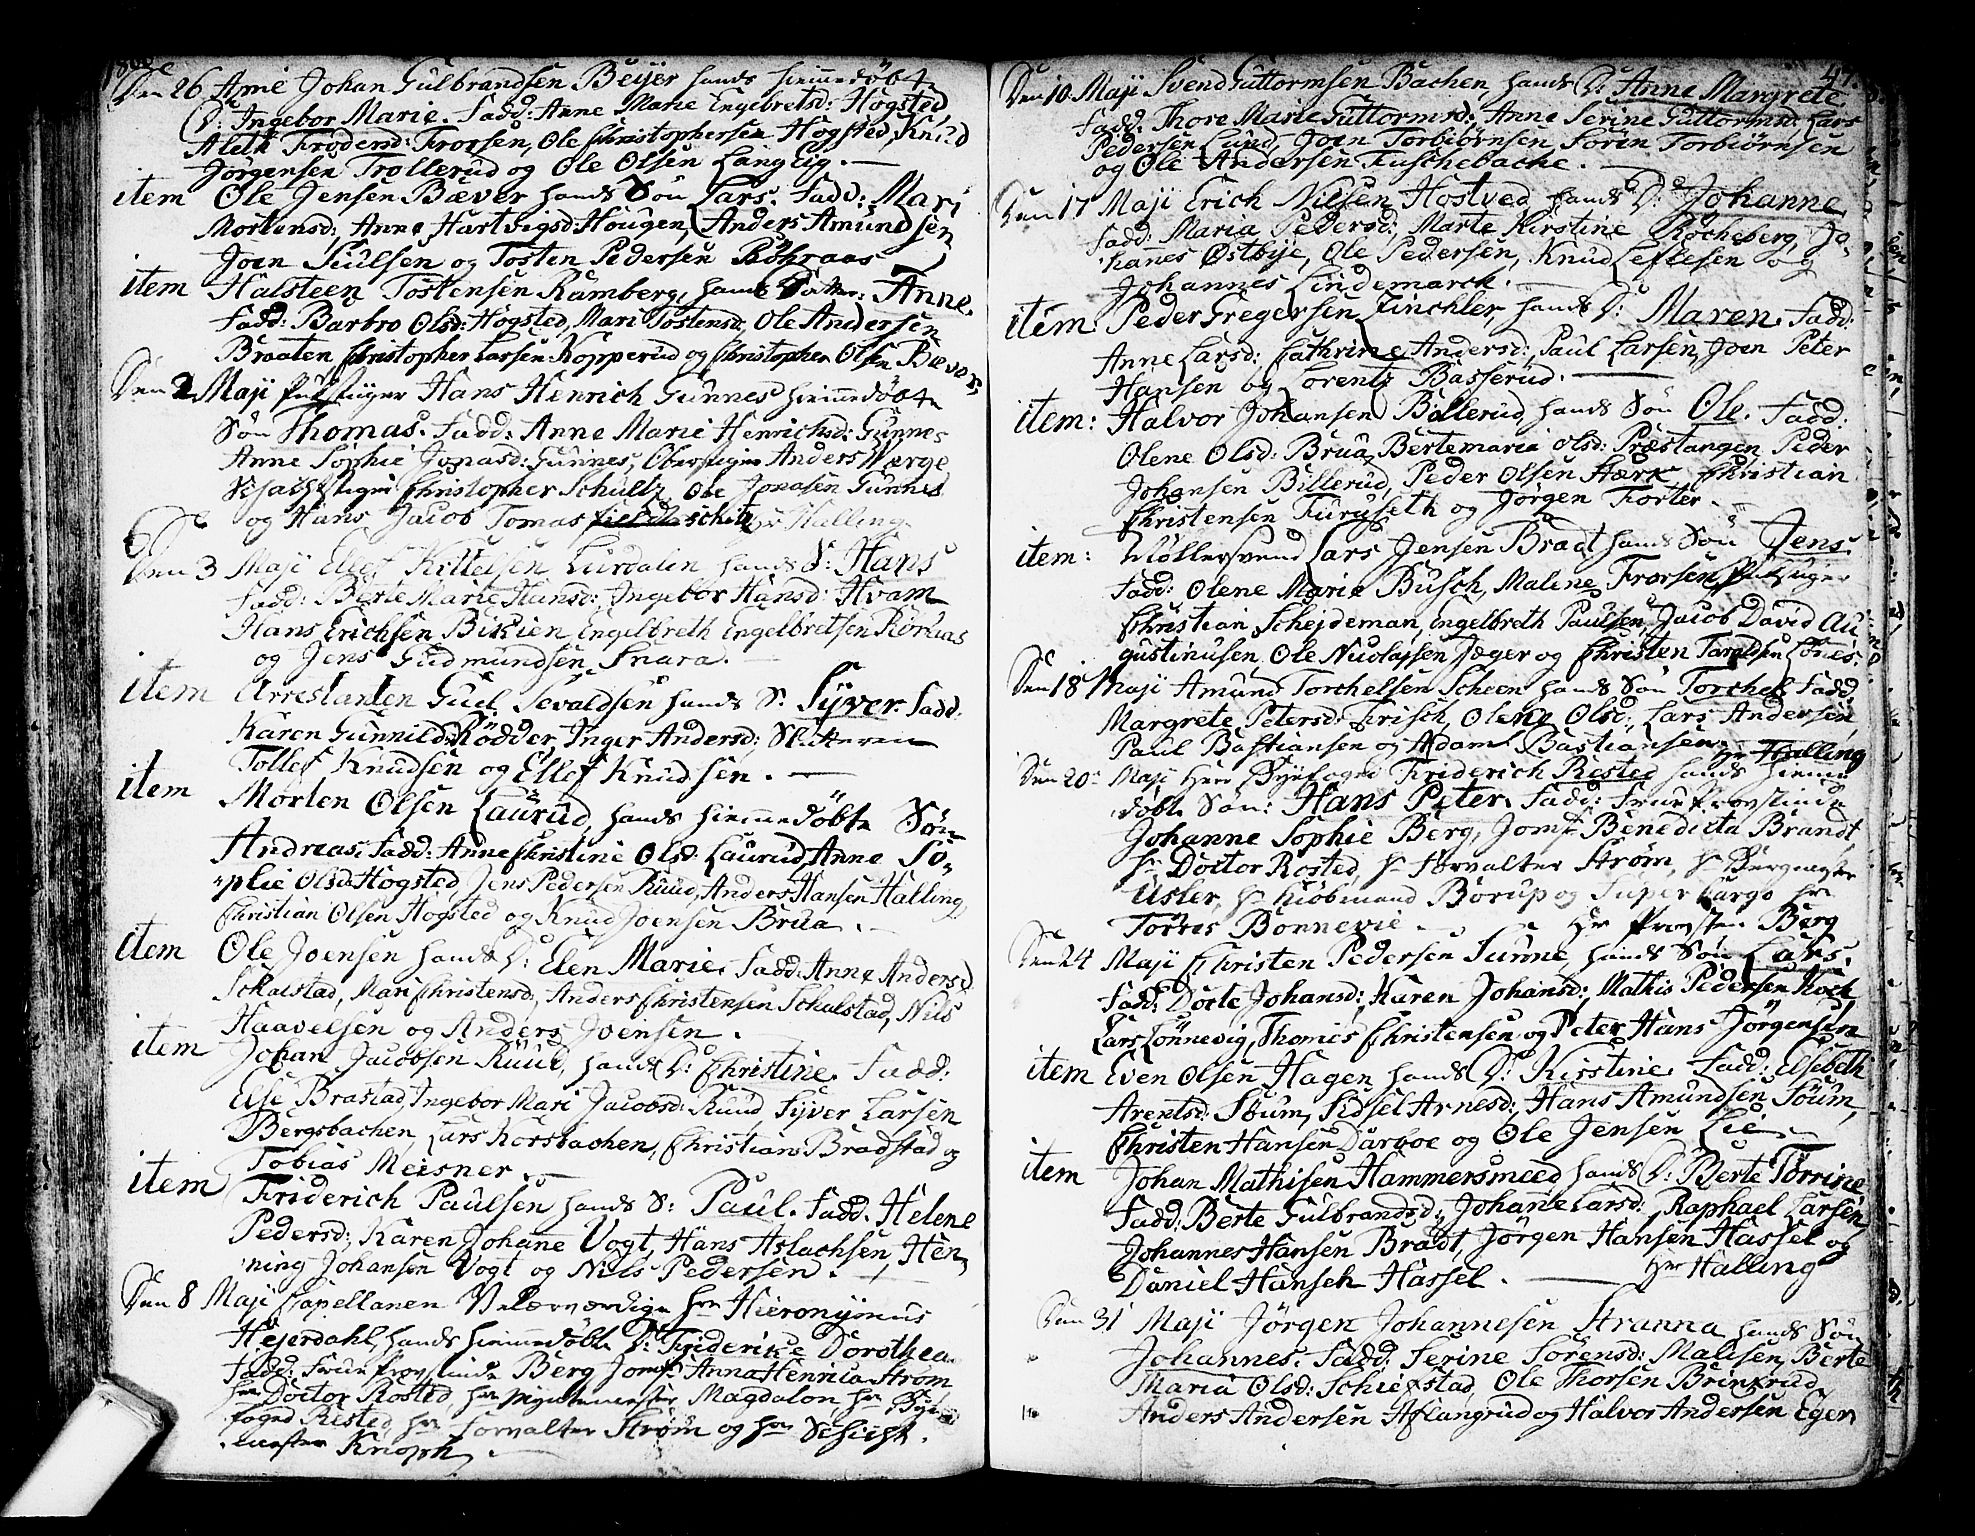 1800
Den 26 Apriel Johan Gulbrandsen Beijer hands hiemmedöbte
D: Ingebor Marie. Fadd: Anne Marie Engebretsd: Hogsted
Aleth Frodersd: Frorsen, Ole Christophersen Hogsted, Knud
Jörgensen Trollerud og Ole Olsen Langelig.
item Ole Jensen Bæver hands Sön Lars. Fadd: Mari
Mortensd; Anne Hartvigsd: Hougen, Anders Amundsen
Joen Paulsen og Tosten Pedersen Röhraas
item Halsteen Tostensen Ramberg, hands Datter: Anne.
Fadd: Barbro Olsd: Hogsted, Mari Tostensd, Ole Andersen
Braaten, Christopher Larsen Kopperud og Christopher Olsen Bæver.
Den 2 Maji Pukstiger Hans Henrich Gunnes hiemmedöbte
Sön Thomas. Fadd: Anne Marie Henrichsd: Gunnes
Anne Sophie Jonasd: Gunnes, Oberstiger Anders Værge
Schachtstiger Christopher Schultz, Ole Jonasen Gunnes
og Hans Jacob Tomas Hr Halling.
Den 3 Maji Ellef Kittelsen Lurdalen hands S: Hans
Fadd: Berte Marie Hansd:, Ingebor Hansd: Hvam
Hans Erichsen Bikien, Engelbreth Engelbretsen Röraas
og Jens Gudmundsen Snara.
item Arrestanten Guel Sevaldsen hands S: Syver. Fadd.
Karen Gunnildsd: Rödder, Inger Andersd: Slutteren
Tollef Knudsen og Ellef Knudsen.
item Morten Olsen Laurud, hands hiemmedöbte Sön
Andreas. Fadd: Anne Christine Olsd: Laurud, Anne So-
phie Olsd: Hogsted, Jens Pedersen Ruud, Anders Hansen Halling,
Christian Olsen Hogsted og Knud Joensen Brua.
item Ole Joensen hands D: Elen Marie. Fadd: Anne Andersd
Skalstad, Mari Christensd, Anders Christensen Skalstad, Nils
Haavelsen og Anders Joensen.
item Johan Jacobsen Ruud, hands D: Christine. Fadd:
Else Brastad, Ingebor Mari Jacobsd: Ruud, Syver Larsen
Bergsbachen, Lars Korsbachen, Christian Bradstad og
Tobias Meisner.
item Friderich Paulsen hands S: Paul. Fadd. Helene
Pedersd;, Karen Johane Vogt, Hans Aslachsen, Hen-
ning Johansen Vogt og Nils Pedersen.
Den 8 Maji Capellanen Velærværdige Hr Hieronymus
Heyerdahl, hands hiemmedöbte D: Friderike Dorothea.
Fadd: Frue Provstinde Berg Jomf: Anna Henrica Strøm
Hr Doctor Rosted, Hr Myntemester Magdalon Hr Bye-
foged Rested Hr Forvalter Strøm og Hr Schicht-
mester Knoph.
47.
Den 10. Maji Svend Guttormsen Bachen, hands D: Anne Margrete
Fadd: Thore Marie Guttormsd:, Anne Serine Guttormsd:, Lars
Pedersen Lund, Joen Torbiörnsen, Sören Torbiörnsen
og Ole Andersen Fuschebache.
Den 17 Maji Erich Nilsen Hostved hands D: Johanne
Fadd: Maria Pedersd;, Marte Kirstine Rocheberg, Jo-
hanes Østbye, Ole Pedersen, Knud Leflesen og
Johannes Lindemarck.
item: Peder Gregersen Finchler, hands D: Maren. Fadd:
Anne Larsd:, Cathrine Andersd:, Paul Larsen, Joen Peter
Hansen og Lorentz Basserud.
item: Halvor Johansen Billerud hands Sön Ole. Fadd:
Olene Olsd: Brua, Bertemaria Olsd: Præstangen, Peder
Johansen Billerud, Peder Olsen Hærk, Christian
Christensen Furuseth og Jörgen Forter.
item: Möllersvend Lars Jensen Bradt hands Sön Jens
Fadd: Olene Maria Busch, Malene Frorsen, Pukstiger
Christian Schejdeman, Engelbreth Paulsen, Jacob David Au-
gustinusen, Ole Nicolajsen Jæger og Christen Taraldsen Lönes.
Den 18 Maji Amund Torchelsen Scheen hands Sön Torchel Fadd.
Margrete Petersd: Frisch, Olene Olsd:, Lars Andersen
Paul Bastiansen og Adam Bastiansen. Hr Halling
Den 20 Maji Herr Byefoged Friderich Rested hands hiemme
döbte Sön: Hans Peter. Fadd: Frue Provstinde
Johanne Sophie Berg, Jomf: Benedicta Brandt
Hr Doctor Rosted, Hr Forvalter Strøm, Hr Bergmester
Usler, Hr Kiöbmand Borup og Super Cargo Hr
Torres Bonnevie. Hr Provsten Berg
Den 24 Maji Christen Pedersen Sunne, hands Sön Lars.
Fadd: Dorte Johansd:, Karen Johansd:, Mathis Pedersen Kock,
Lars Lönnevig, Thomes Christensen og Peter Hans Jörgensen
item Even Olsen Hagen hands D: Kirstine. Fadd: Elsebeth
Arentsd: Soum, Sidsel Arnesd:, Hans Amundsen Soum,
Christen Hansen Darboe og Ole Jensen Lie.
item Johan Mathisen Hammersmeed hands D: Berte Torrine
Fadd: Berte Gulbrandsd:, Johane Larsd:, Raphael Larsen,
Johannes Hansen Bradt, Jörgen Hansen Hassel og
Daniel Hansen Hassel. Hr Halling
Den 31 Maji Jörgen Johannesen Stranna hands Sön
Johannes. Fadd: Serine Sörensd: Malisen, Berte
Maria Olsd: Schiefstad, Ole Thorsen Brinkrud,
Anders Andersen Aflangrud og Halvor Andersen Egern